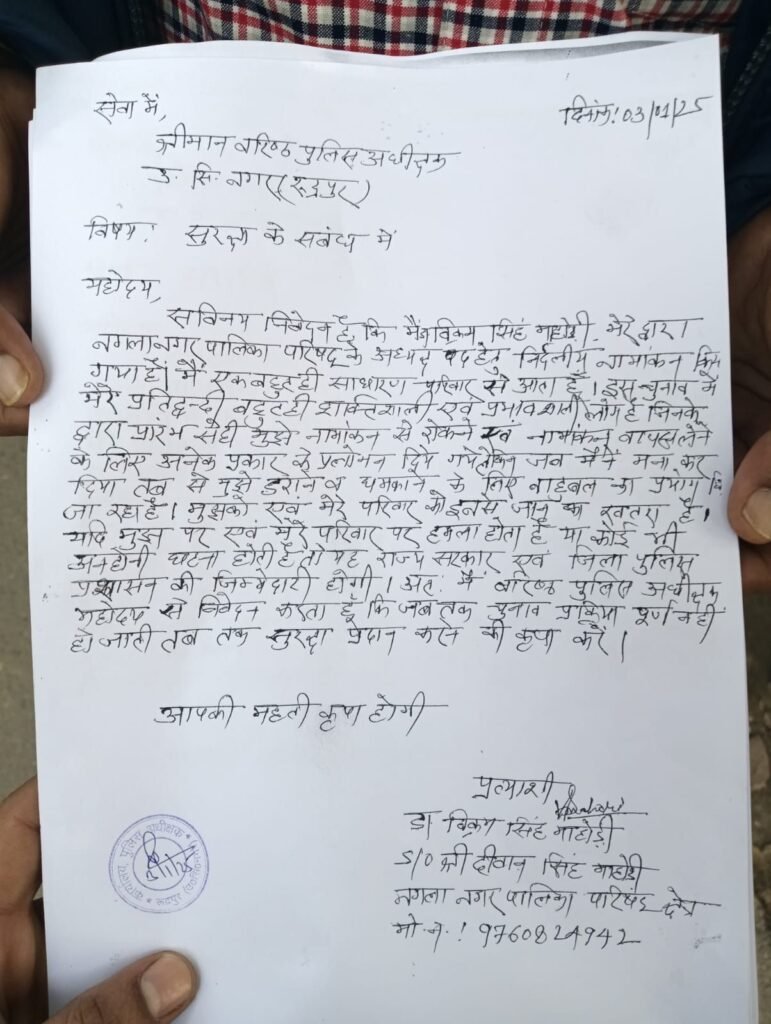 सेवा में,
दिनांक: 03/01/25
श्रीमान वरिष्ठ पुलिस अधीक्षक
उ. सि. नगर (रूद्रपुर)
विषय: सुरक्षा के सबंध में
महोदय,
सविनय निवेदन है कि मैं डा विक्रम सिंह माहोड़ी. मेरे द्वारा
नगला नगर पालिका परिषद् के अध्यक्ष पद हेतु निर्दलीय नामांकन किया
गया है। मैं एक बहुत ही साधारण परिवार से आता हूँ। इस चुनाव में
मेरे प्रतिद्वन्दी बहुत ही शक्तिशाली एवं प्रभावशाली लोग है जिनके
द्वारा प्रारंभ से ही मुझे नामांकन से रोकने एवं नामांकन वापस लेने
के लिए अनेक प्रकार के प्रलोभन दिये गये लेकिन जब मैंने मना कर
दिया तब से मुझे डराने व धमकाने के लिए बाहुबल का प्रयोग कि
जा रहा है। मुझको एवं मेरे परिवार को इनसे जान का खतरा है।
यदि मुझ पर एवं मेरे परिवार पर हमला होता है या कोई भी
अनहोनी घटना होती है तो यह राज्य सरकार एवं जिला पुलिस
प्रशासन की जिम्मेदारी होगी। अतः मैं वरिष्ठ पुलिस अधीक्षक
महोदय से निवेदन करता हूँ कि जब तक चुनाव प्रक्रिया पूर्ण नहीं
हो जाती तब तक सुरक्षा प्रदान करने की कृपा करें।
आपकी महती कृपा होगी
प्रत्याशी
डा विक्रम सिंह माहोड़ी
S/O श्री दीवान सिंह माहोड़ी
नगला नगर पालिका परिषद क्षेत्र
मो. न. : 9760824942
कार्यालय पुलिस अधीक्षक